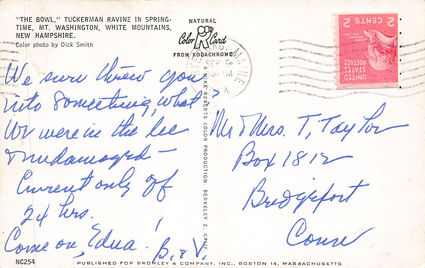 "THE BOWL," TUCKERMAN RAVINE IN SPRING-
TIME, MT. WASHINGTON, WHITE MOUNTAINS,
NEW HAMPSHIRE.
Color photo by Dick Smith
NATURAL
Color Card
FROM KODACHROME
MAINE
2 CENTS 2
UNITED
STATES
POSTAGE
We sure threw you
into something, what?
We were in the lee
& undamaged—
Current only off
24 hrs.
Come on, Edna!
B. & V.
Mr & Mrs. T. Taylor
Box 1812
Bridgeport
Conn
A MIKE ROBERTS COLOR PRODUCTION, BERKELEY 2, CALIF.
NC254
PUBLISHED FOR BROMLEY & COMPANY, INC., BOSTON 14, MASSACHUSETTS